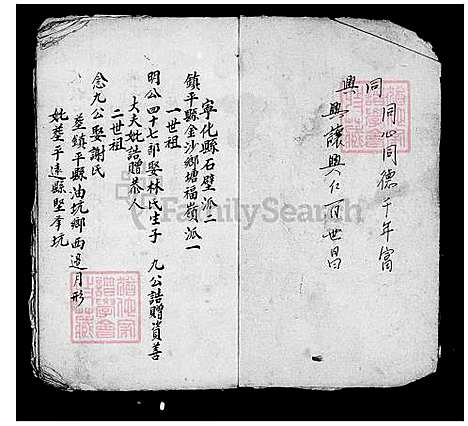 同 同心同德千年富
興 興讓興仁百世昌
寧化縣石壁派二
鎮平縣金沙鄉塘福嶺派一
一世祖
明公四十七郎娶林氏生子 九公誥贈資善
大夫妣誥贈恭人
二世祖
念九公娶謝氏
葬鎮平縣油坑鄉西邊月形
妣葬平遠縣堅李坑
FamilySearch